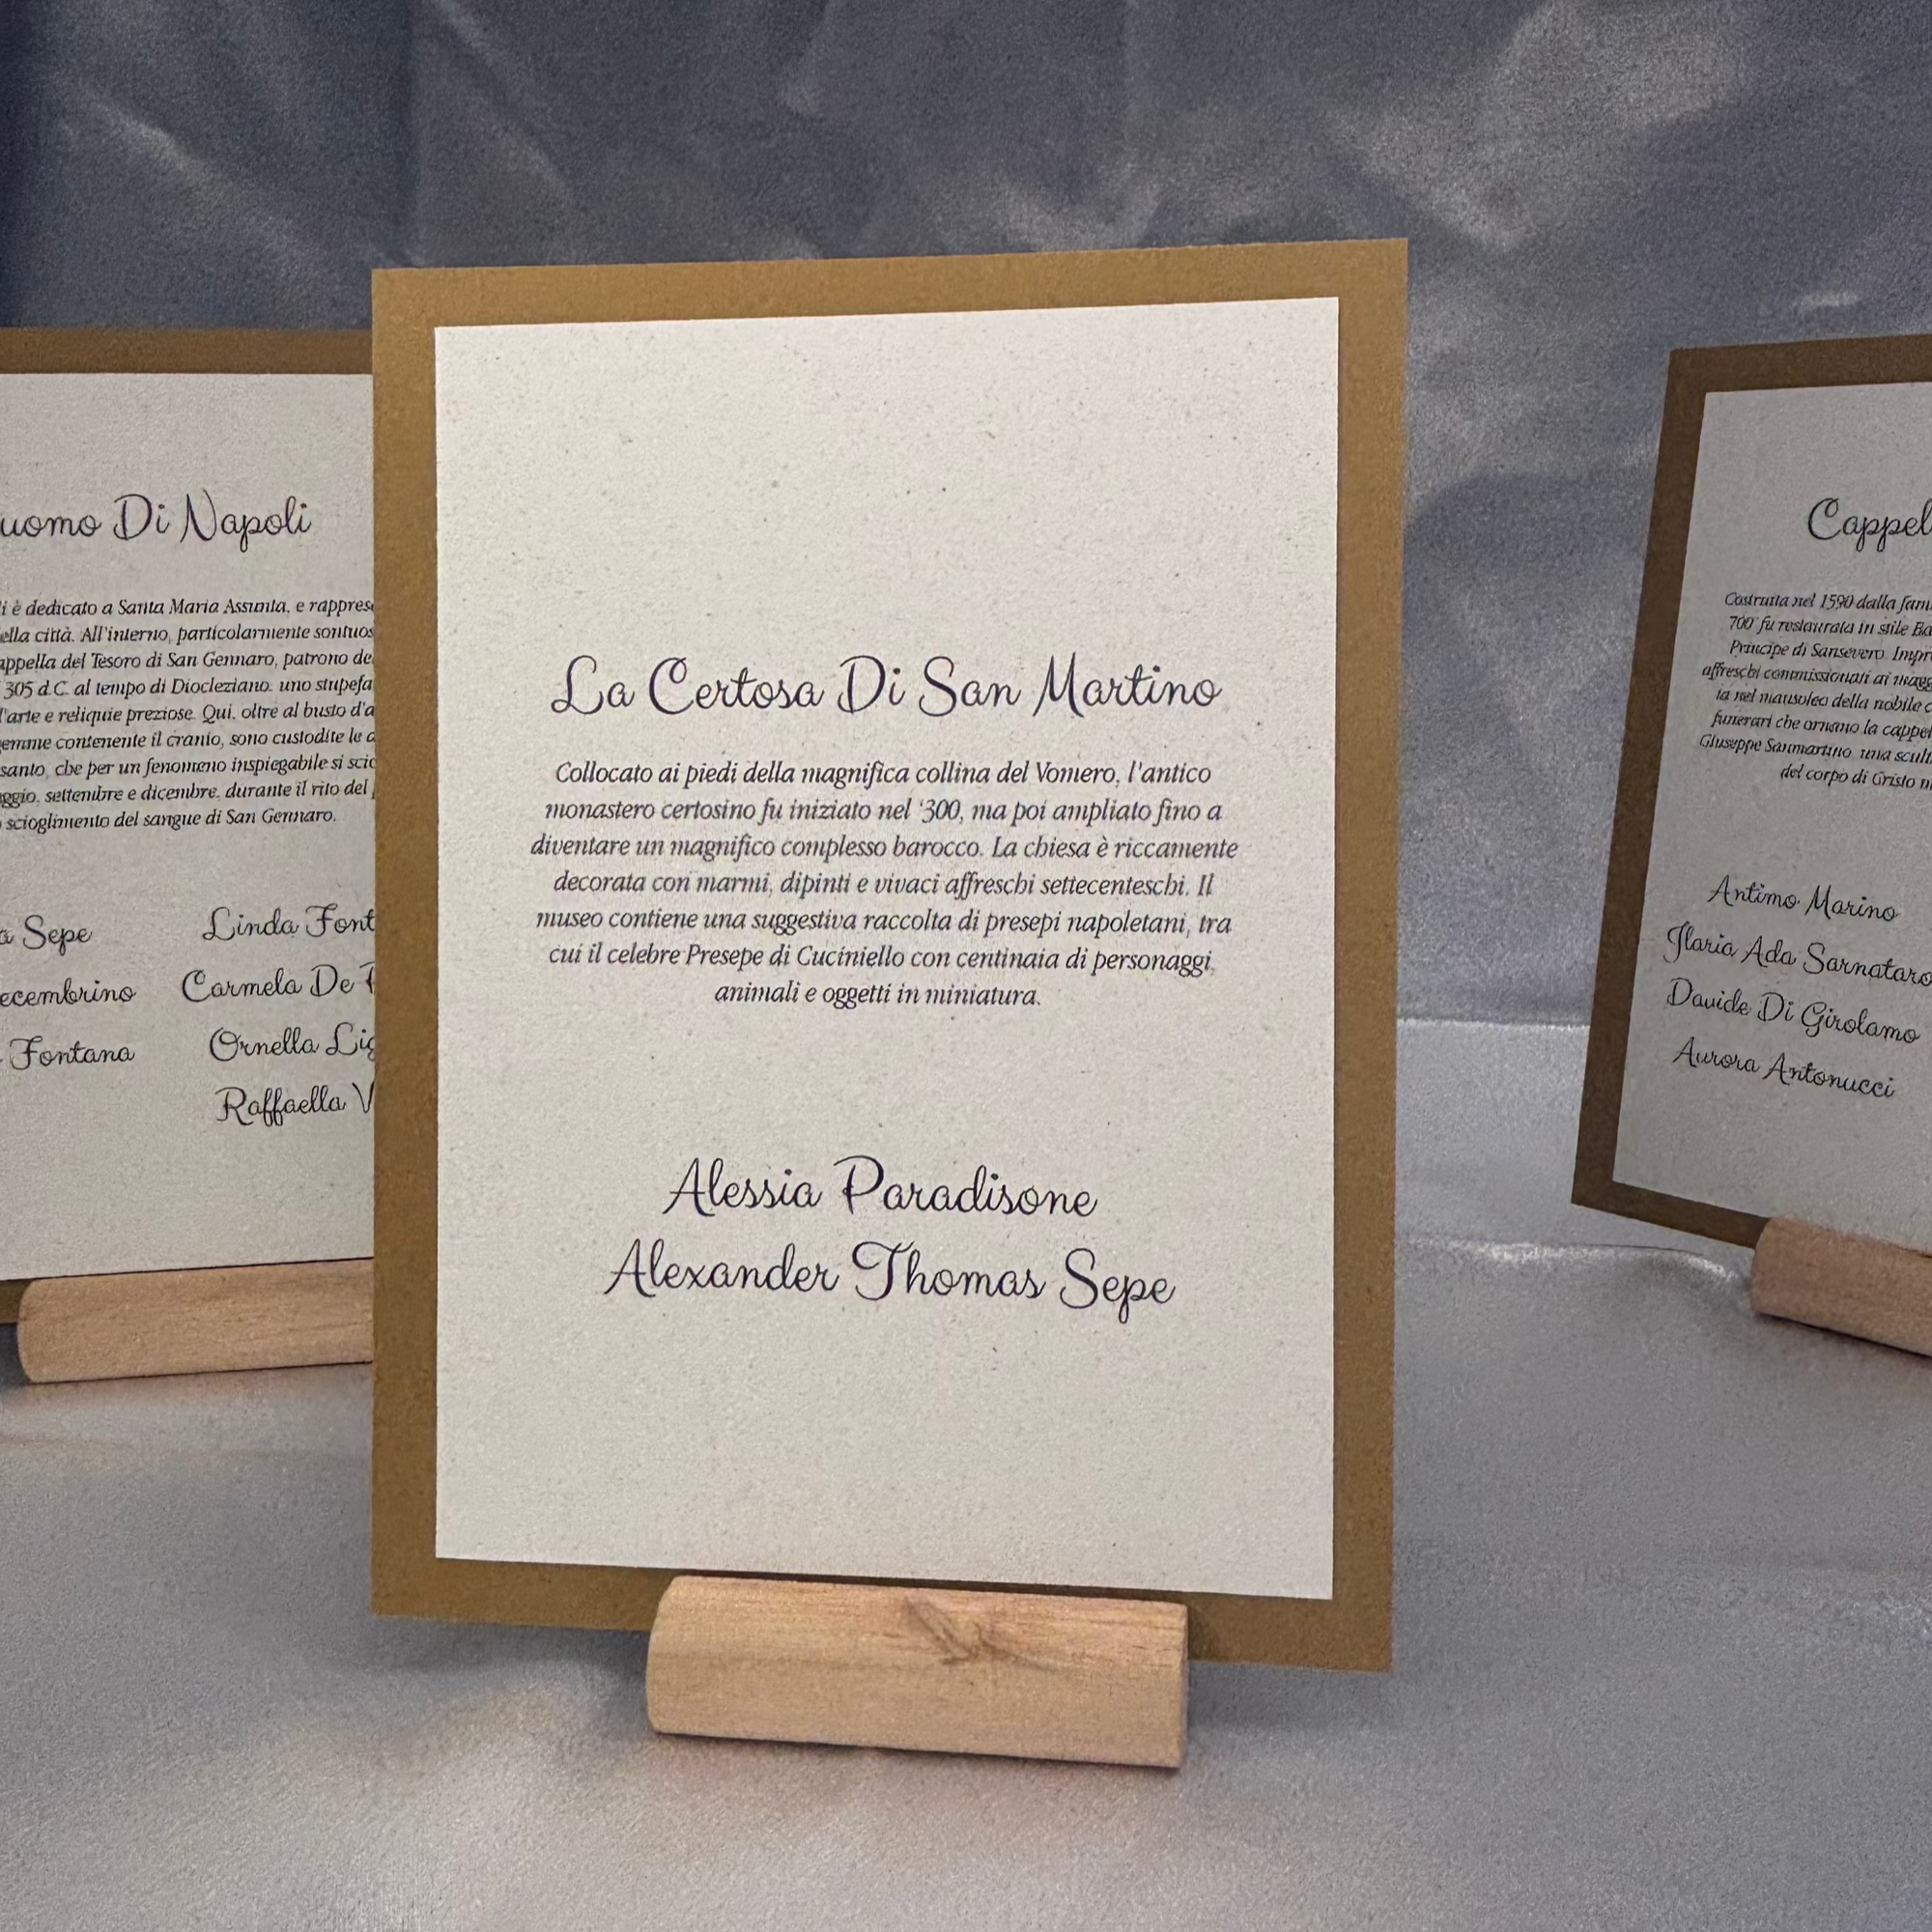 Di Napoli
è dedicato a Santa Maria Assunta, e
città. All'interno, particolarmente
del Tesoro di San Gennaro, patrono
305 d.C. al tempo di Diocleziano. uno
e reliquie preziose. Qui, oltre al busto
contenente il cranio, sono custodite le
santo, che per un fenomeno inspiegabile si
settembre e dicembre, durante il rito del
scioglimento del sangue di San Gennaro.
Sepe
Fontana
Linda
Carmela De
Ornella
Raffaella
La Certosa Di San Martino
Collocato ai piedi della magnifica collina del Vomero, l'antico
monastero certosino fu iniziato nel '300, ma poi ampliato fino a
diventare un magnifico complesso barocco. La chiesa è riccamente
decorata con marmi, dipinti e vivaci affreschi settecenteschi. Il
museo contiene una suggestiva raccolta di presepi napoletani, tra
cui il celebre Presepe di Cuciniello con centinaia di personaggi,
animali e oggetti in miniatura.
Alessia Paradisone
Alexander Thomas Sepe
Costruita nel 1590 dalla
700' fu restaurata in stile
Principe di Sansevero.
affreschi commissionati ai
nel mausoleo della nobile
funerari che ornano la
Giuseppe Sanmartino, una
del corpo di Cristo
Antimo Marino
Ilaria Ada Sarnataro
Davide Di Girolamo
Aurora Antonucci